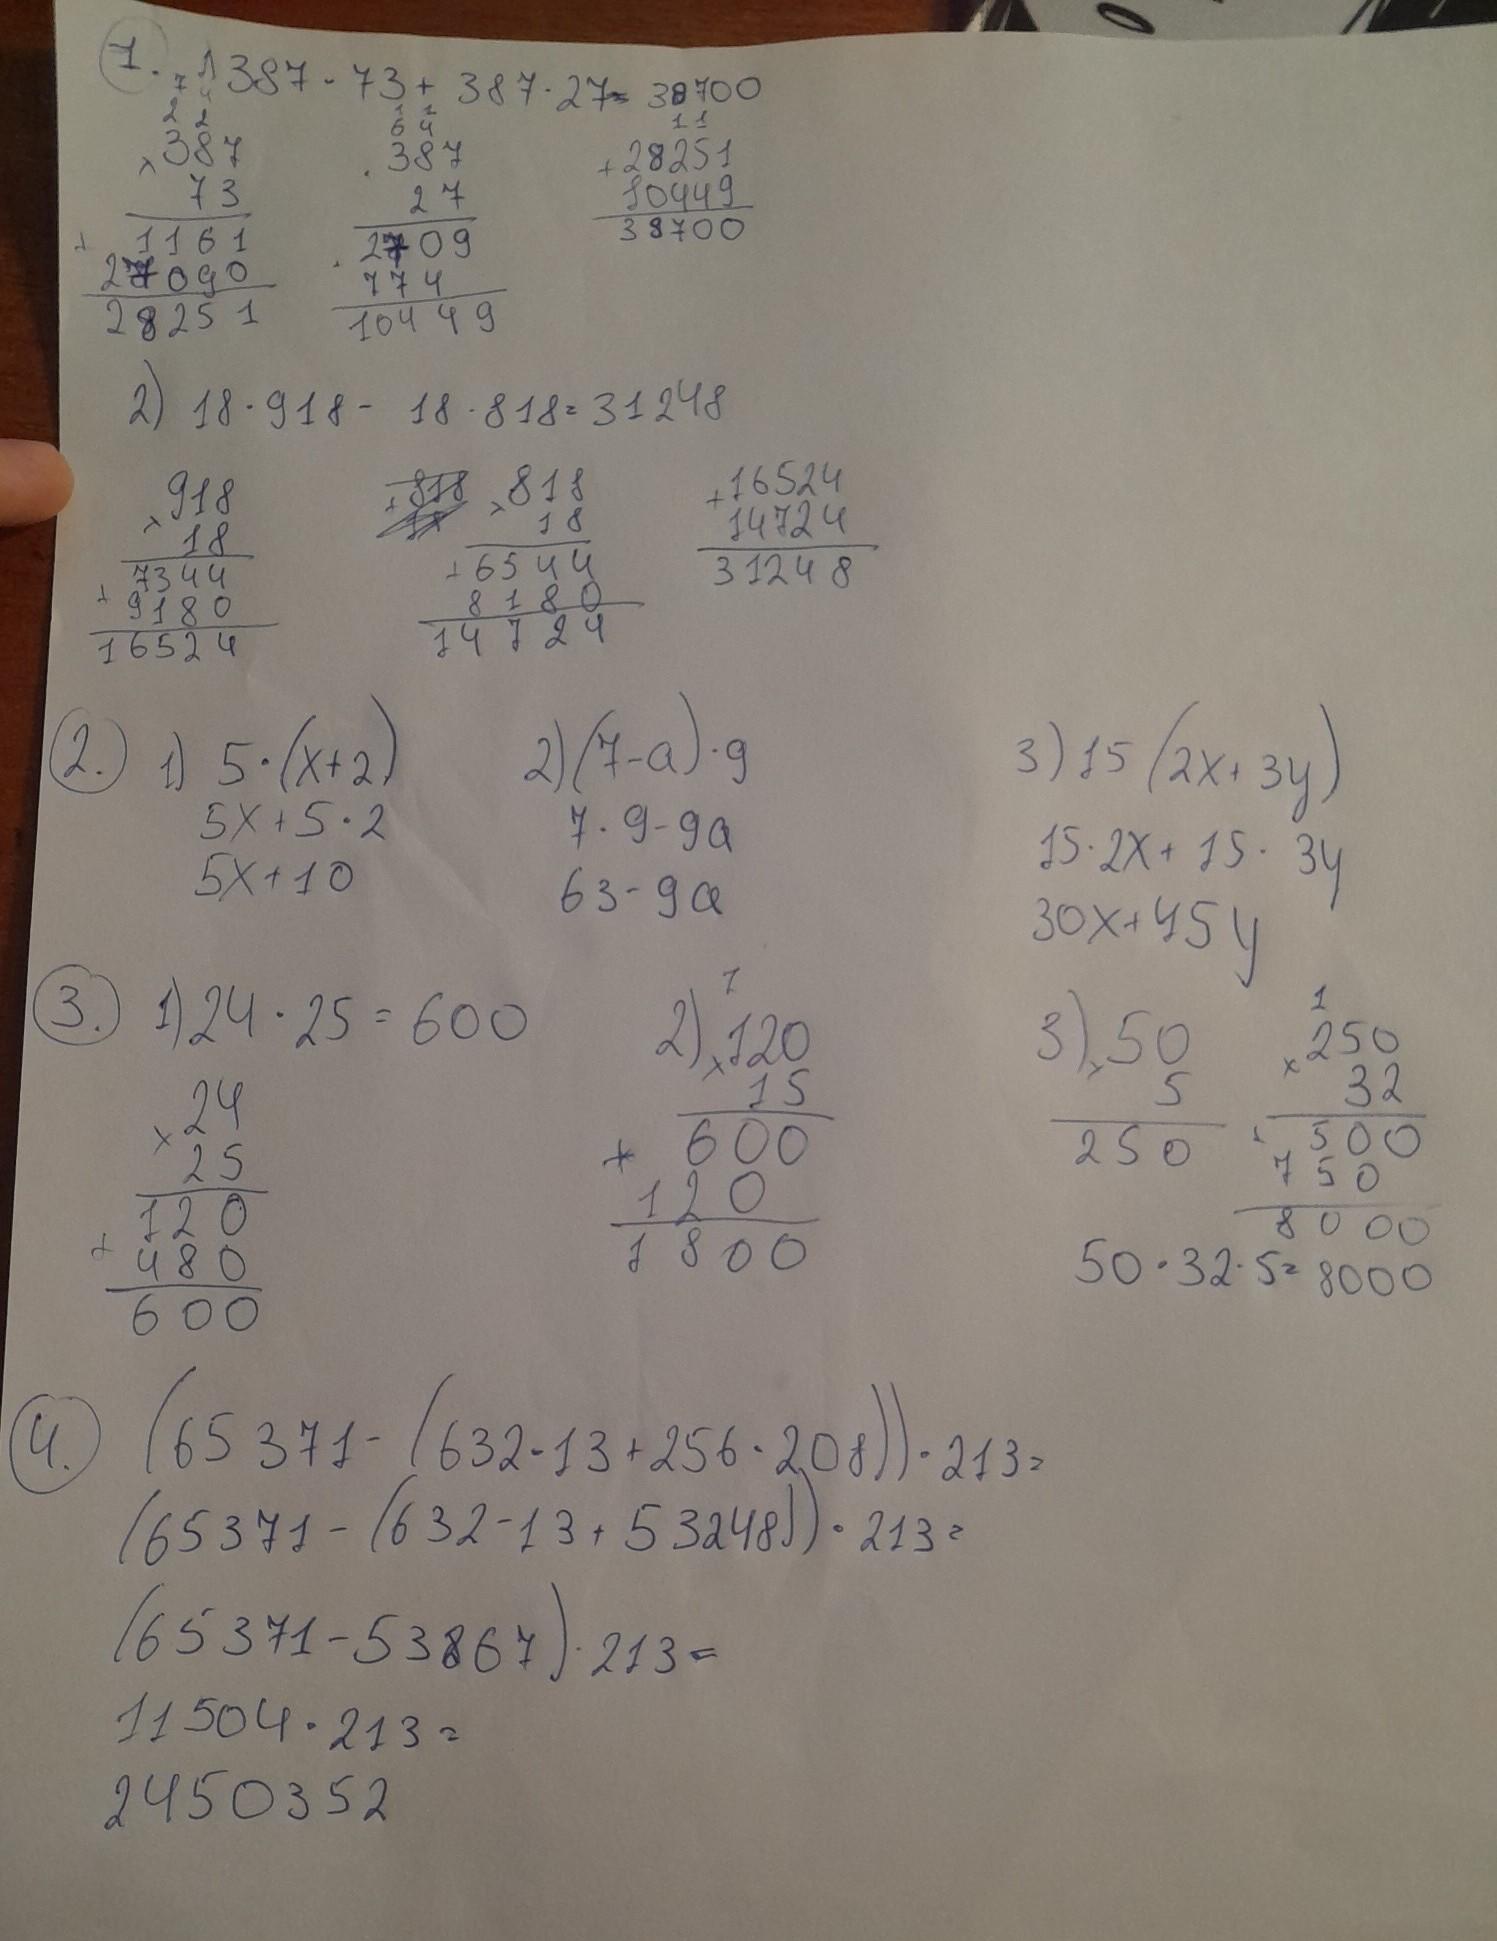 1. 1 387 · 73 + 387 · 27 = 38700
7 4
2 2
× 387
73
+ 1161
27090
28251
1 1
6 4
· 387
27
· 2709
774
10449
1 1
+ 28251
10449
38700
2) 18 · 918 - 18 · 818 = 31248
× 918
18
+ 7344
9180
16524
+ 818
18
× 818
18
+ 6544
8180
14724
+ 16524
14724
31248
2. 1) 5 · (x+2)
5x + 5 · 2
5x + 10
2) (7-a) · 9
7 · 9 - 9a
63 - 9a
3) 15 (2x + 3y)
15 · 2x + 15 · 3y
30x + 45y
3. 1) 24 · 25 = 600
× 24
25
+ 120
480
600
1
2) × 120
15
+ 600
120
1800
3) × 50
5
250
1
× 250
32
+ 500
750
8000
50 · 32 · 5 = 8000
4. (65 371 - (632 - 13 + 256 · 208)) · 213 =
(65371 - (632 - 13 + 53248)) · 213 =
(65371 - 53867) · 213 =
11504 · 213 =
2450352